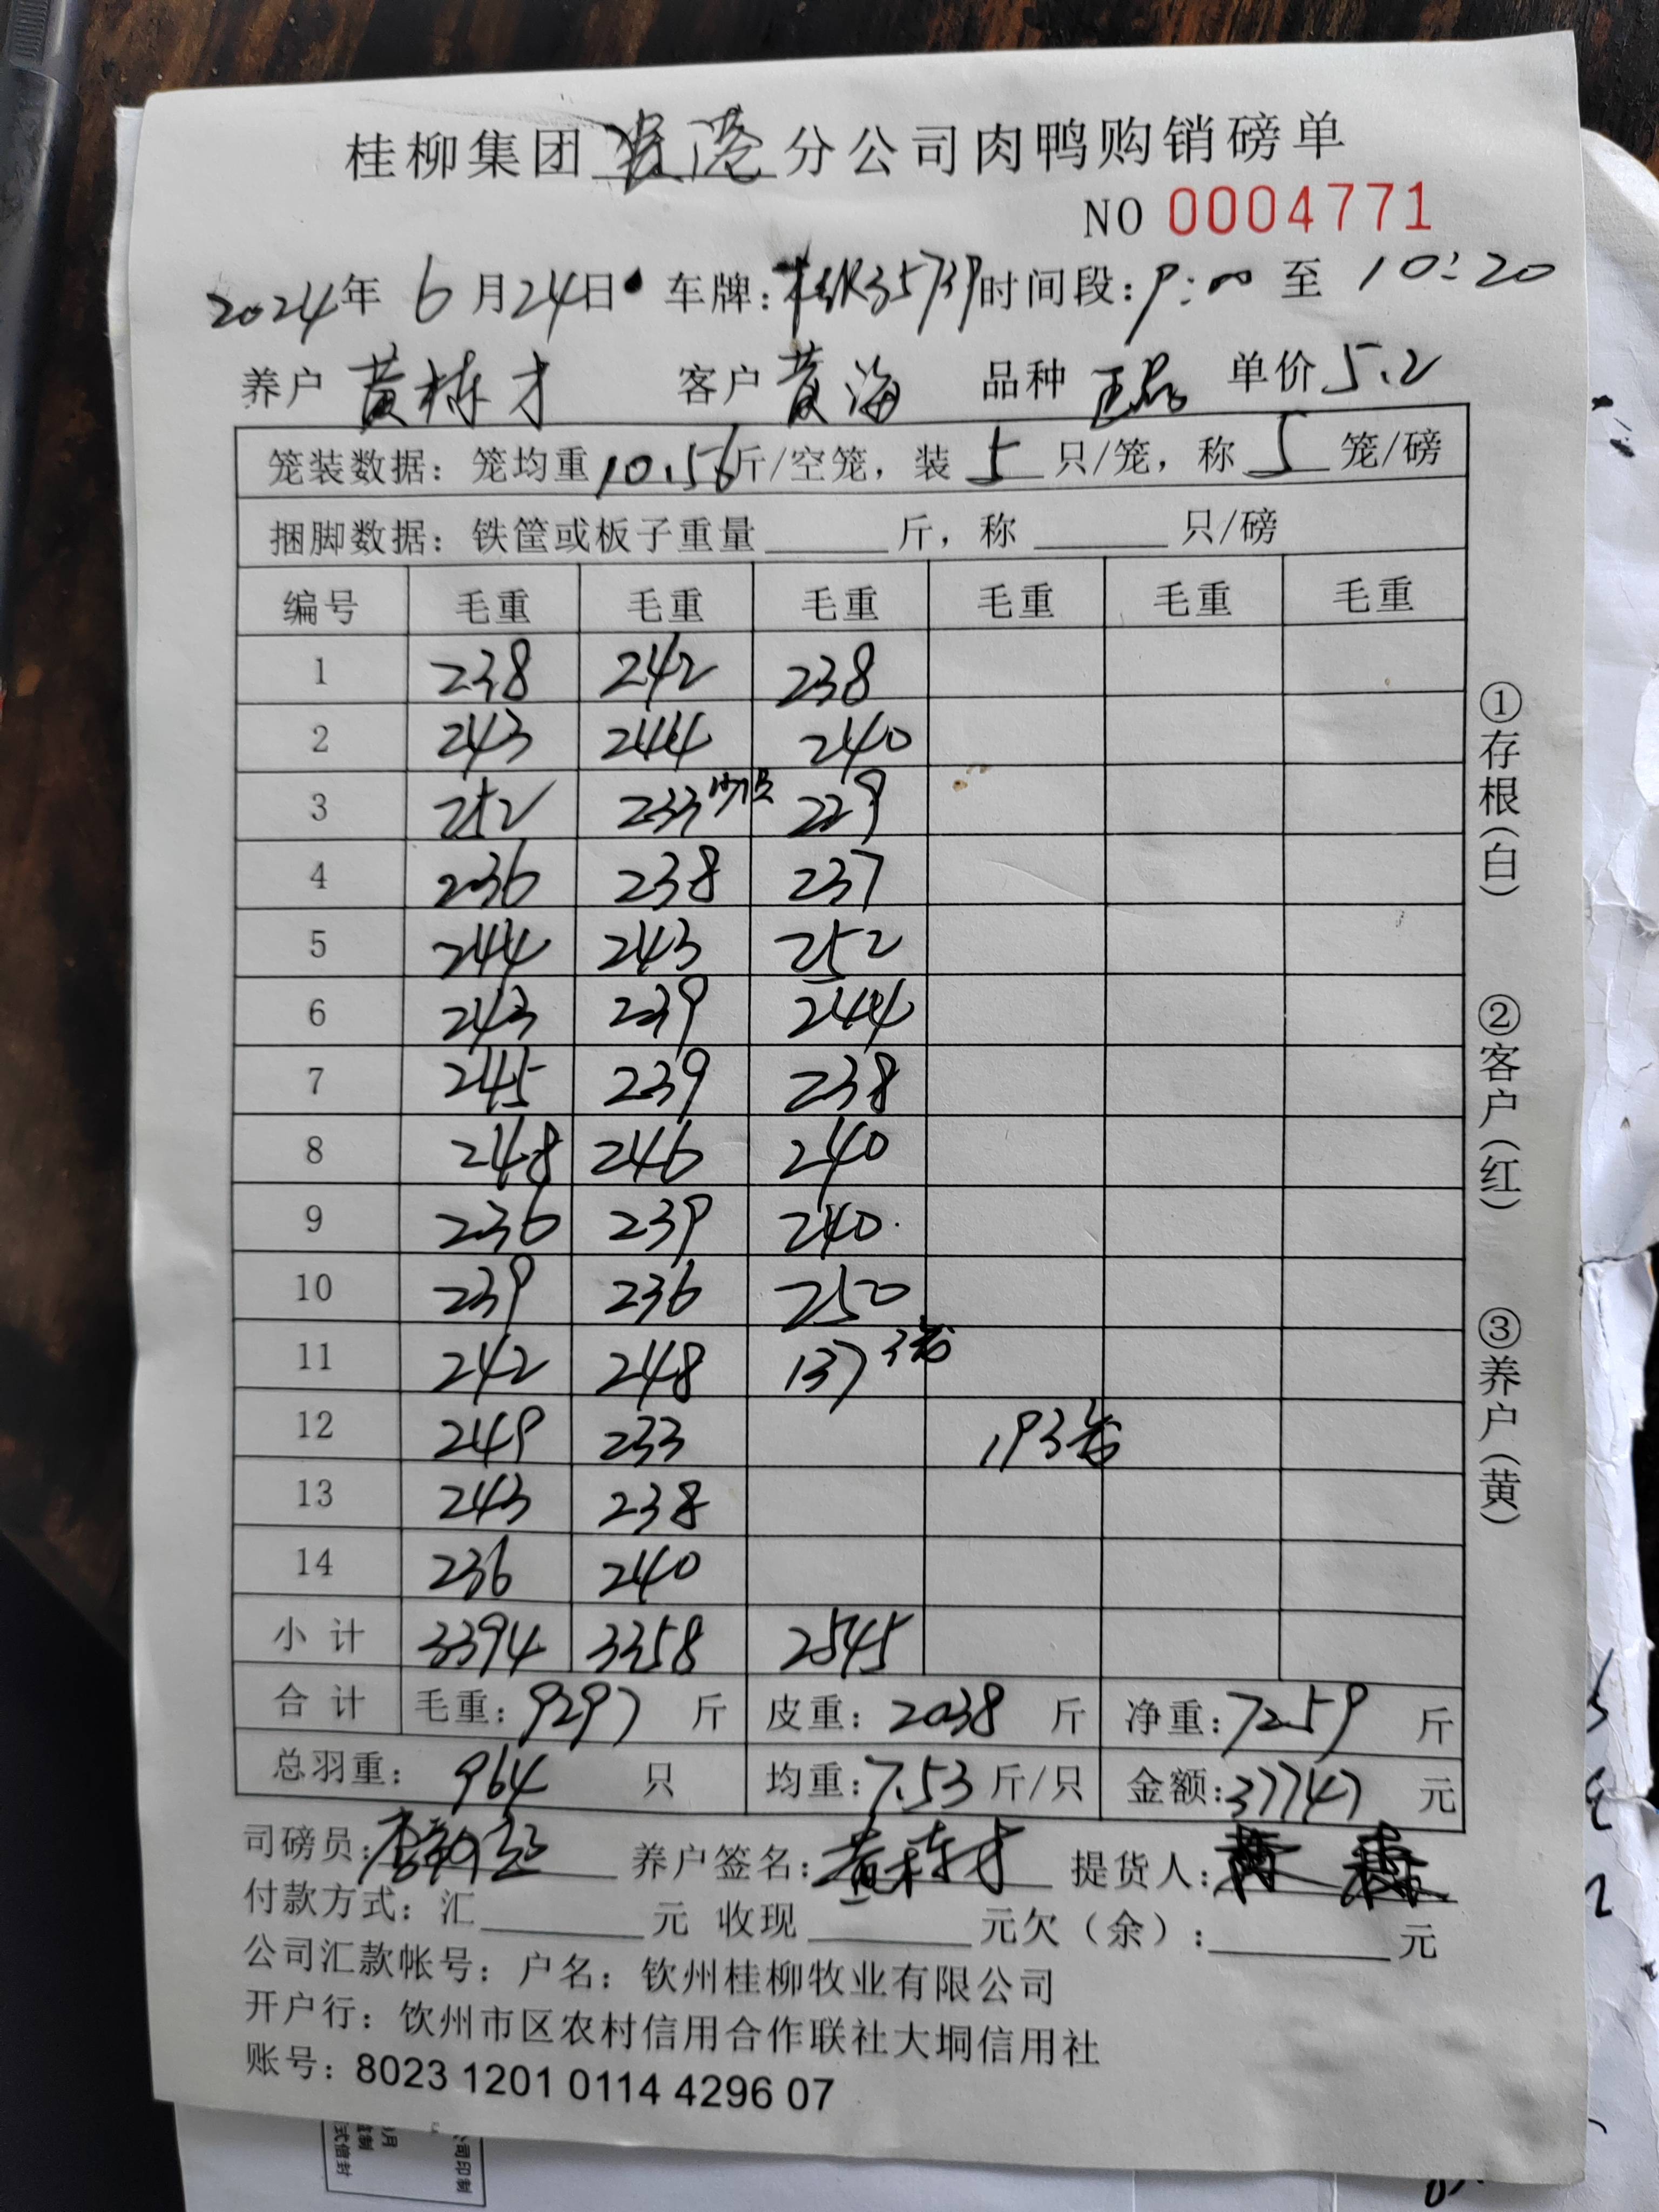 桂柳集团贵港分公司肉鸭购销磅单
NO 0004771
2024年 6月24日 车牌:桂K35739时间段:9:00 至 10:20
养户 黄栋才 客户 黄海 品种 单价 5.2
笼装数据: 笼均重10.56斤/空笼, 装 5 只/笼, 称 5 笼/磅
捆脚数据: 铁筐或板子重量 斤, 称 只/磅
编号 毛重 毛重 毛重 毛重 毛重 毛重
1 238 242 238
2 243 244 240
3 252 233 229
4 236 238 237
5 244 243 252
6 243 239 244
7 245 239 238
8 248 246 240
9 236 239 240
10 239 236 250
11 242 248 137 3笼
12 249 233 193笼
13 243 238
14 236 240
小计 3394 3358 2545
合计 毛重: 9297 斤 皮重: 2038 斤 净重: 7259 斤
总羽重: 964 只 均重: 7.53 斤/只 金额: 37747 元
司磅员: 养户签名: 黄栋才 提货人:
付款方式: 汇 元 收现 元欠(余): 元
公司汇款帐号: 户名: 钦州桂柳牧业有限公司
开户行: 钦州市区农村信用合作联社大垌信用社
账号: 8023 1201 0114 4296 07
①存根(白)
②客户(红)
③养户(黄)